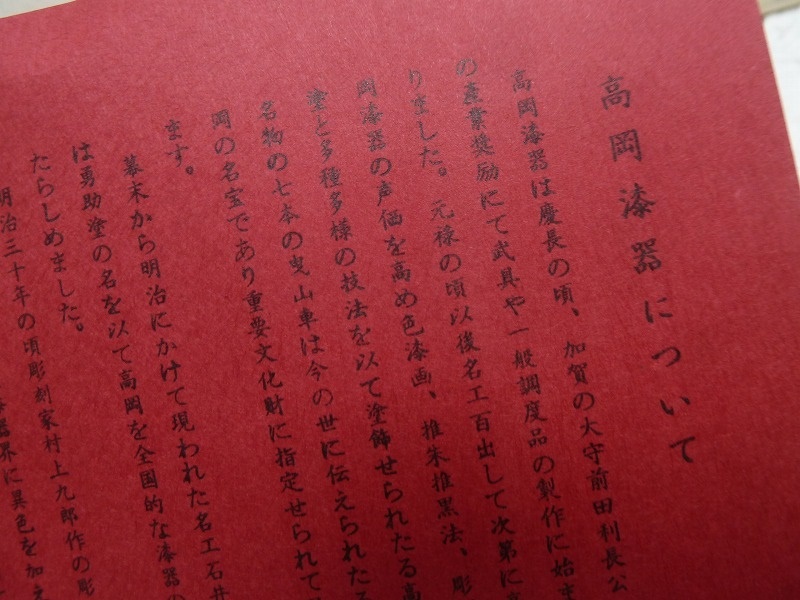 高岡漆器について
高岡漆器は慶長の頃、加賀の太守前田利長公
の産業奨励にて武具や一般調度品の製作に始ま
りました。元禄の頃以後名工百出して次第に高
岡漆器の声価を高め色漆画、推朱推黒法、彫
塗と多種多様の技法を以て塗飾せられたる高
名物の七本の曳山車は今の世に伝えられたる
岡の名宝であり重要文化財に指定せられて
ます。
幕末から明治にかけて現われた名工石井
は勇助塗の名を以て高岡を全国的な漆器の
たらしめました。
明治三十年の頃彫刻家村上九郎作の彫
漆器界に異色を加え